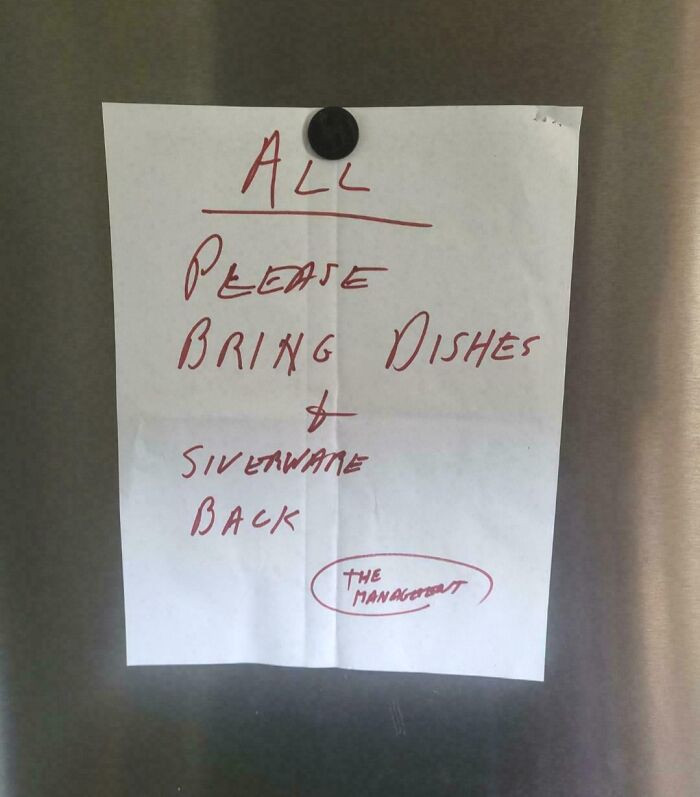 ALL
PLEASE
BRING DISHES
&
SIVERWARE
BACK
THE
MANAGEMENT